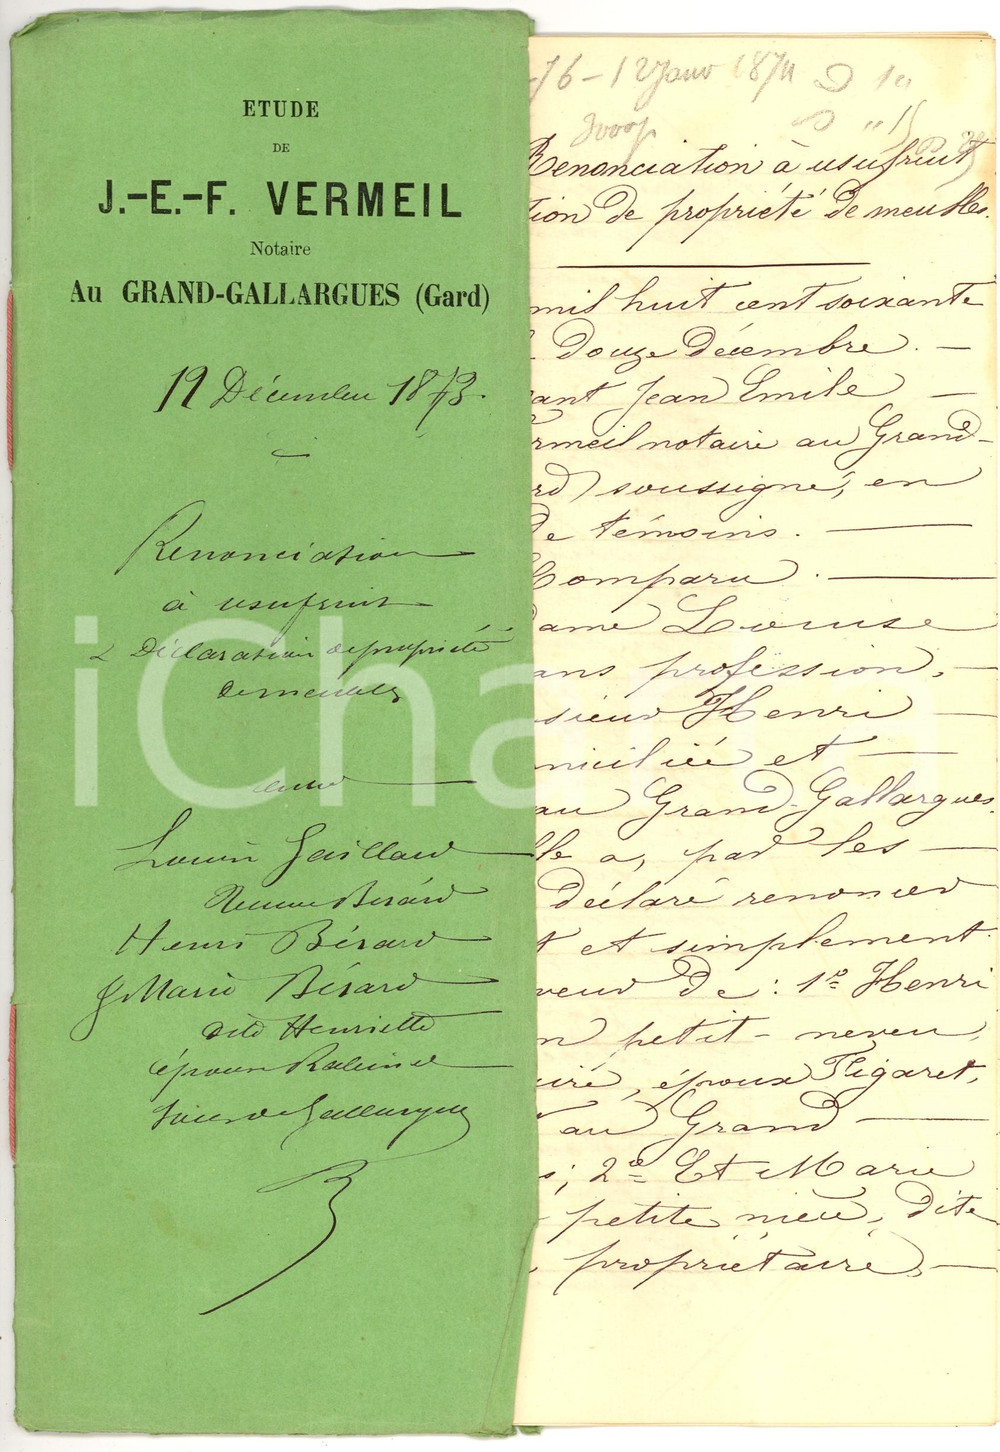 ETUDE
DE
J.-E.-F. VERMEIL
Notaire
Au GRAND-GALLARGUES (Gard)
12 Décembre 1873.
Renonciation
à usufruit
& Déclaration de propriété
de meubles
Louise Gaillard
Veuve Bérard
Henri Bérard
& Marie Bérard
dite Henriette
épouse
tous de Gallargues
76 - 12 Janv 1874
Renonciation à usufruit
tion de propriété de meubles.
mil huit cent soixante
Douze Décembre. —
ant Jean Emile —
ermeil notaire au Grand-
rd) soussigné, en
de témoins. —
Comparu. —
Dame Louise
ans profession, —
sieur Henri —
miciliée et —
au Grand-Gallargues.
lle a, par les —
déclaré renoncer
t et simplement
veur de : 1º Henri
n petit-neveu,
iré, époux Figaret,
au Grand —
s; 2º Et Marie
petite nièce, dite
propriétaire, —
iCharta